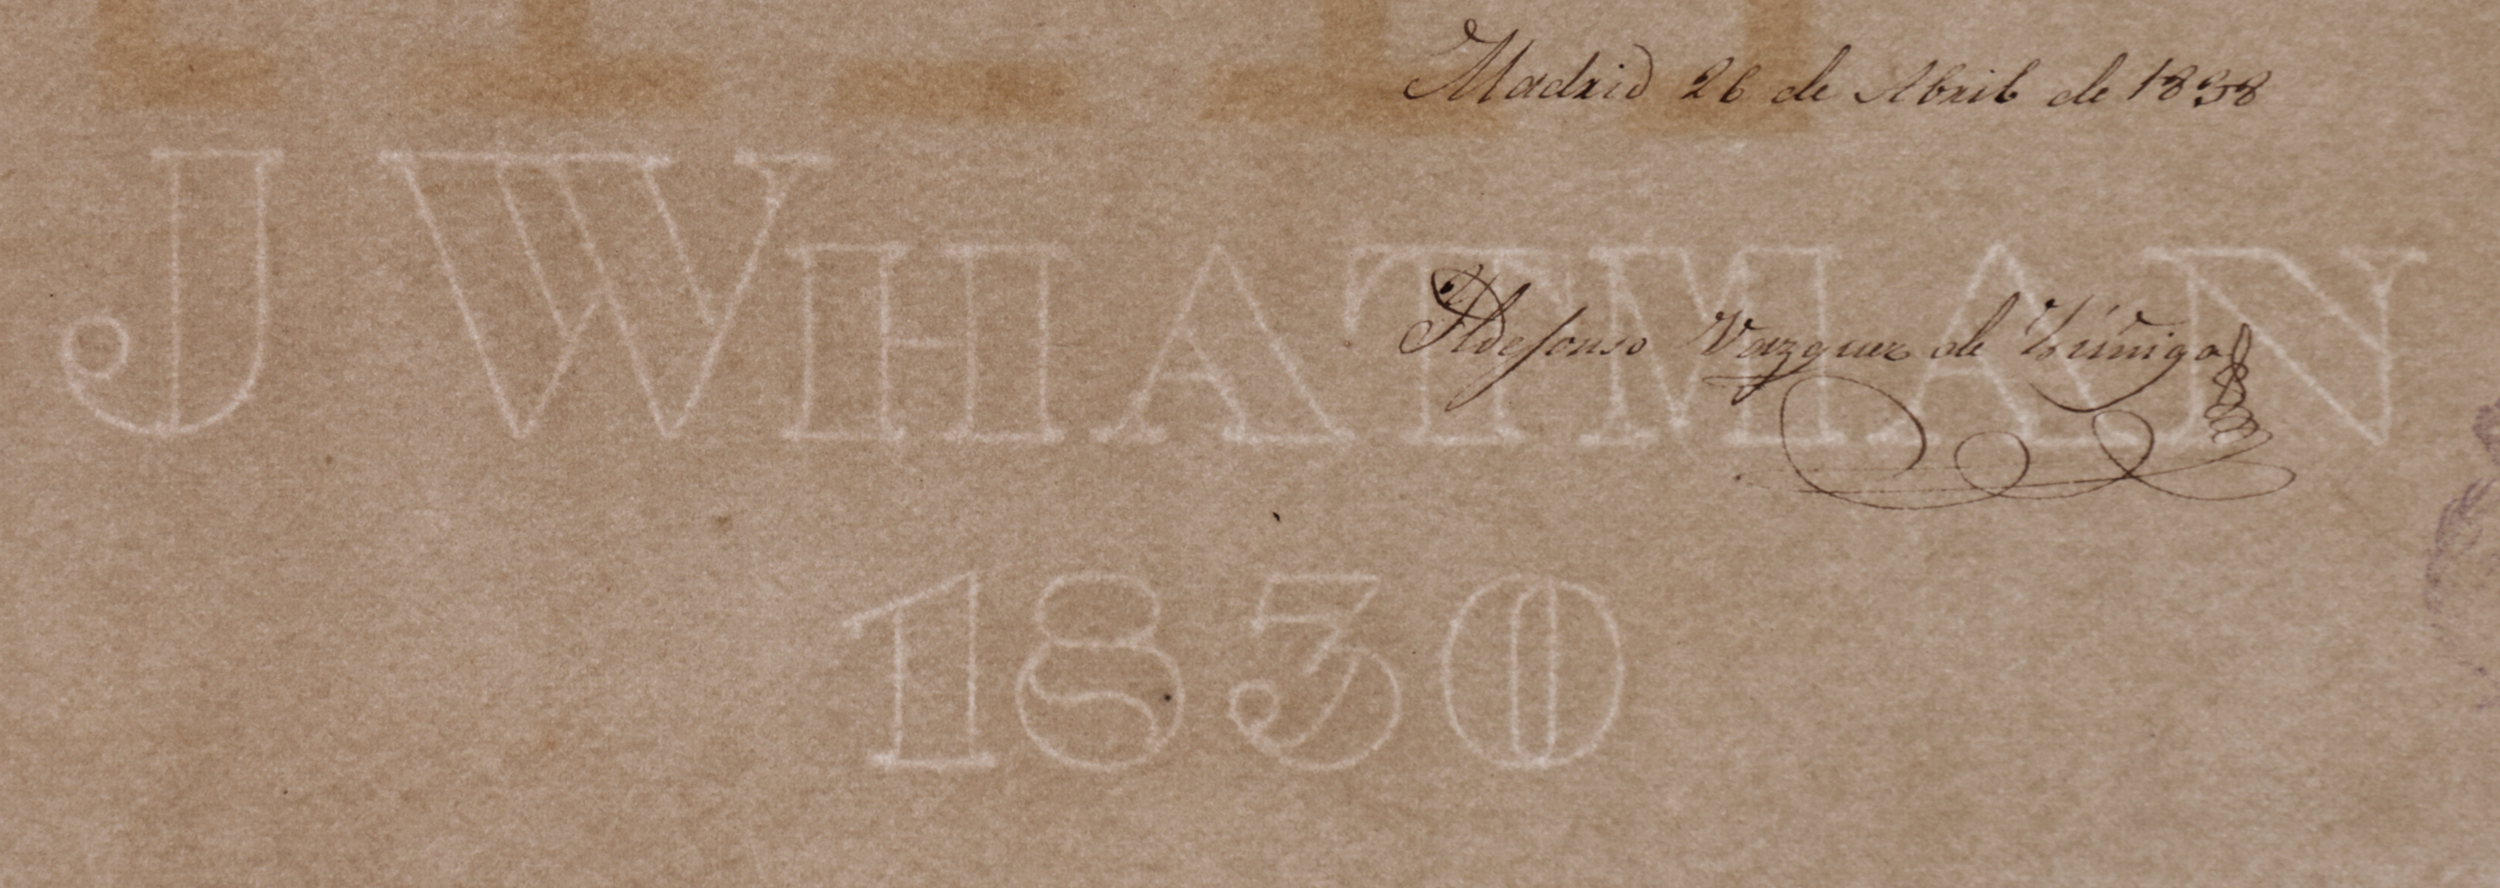 Madrid 26 de Abril de 1838
J WHATMAN
Yldefonso Vazquez de Zúñiga
1830